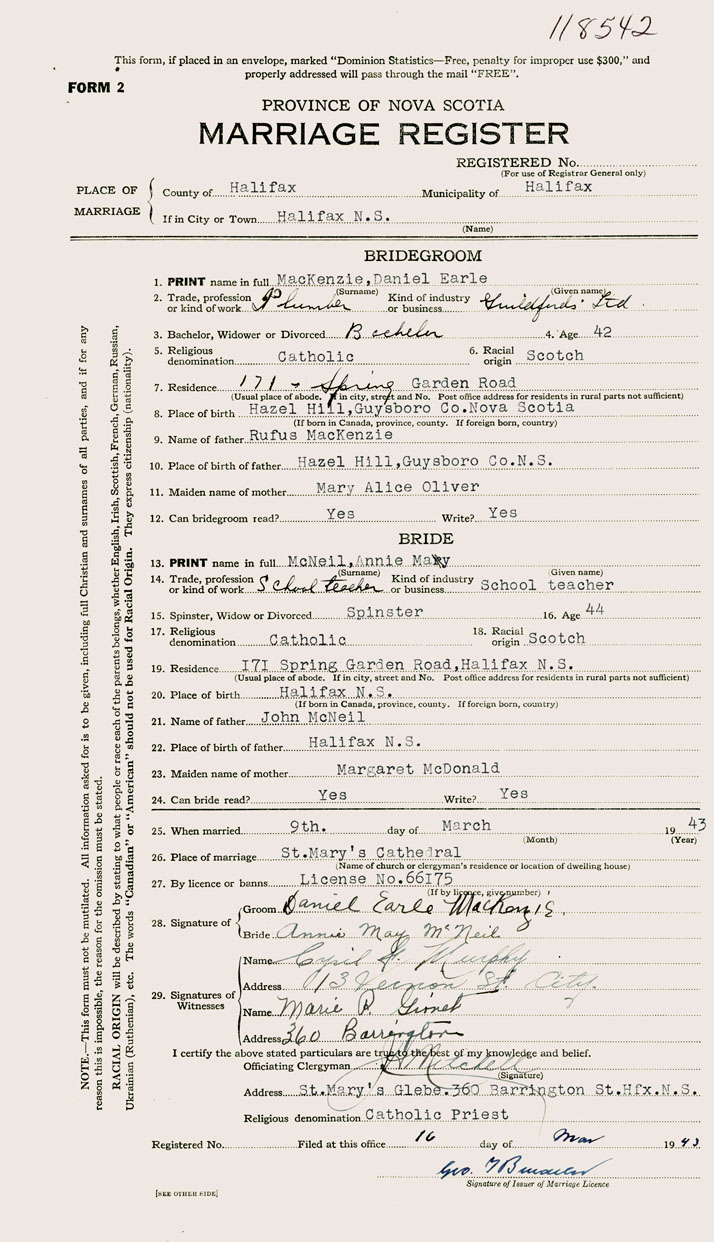 118542
This form, if placed in an envelope, marked “Dominion Statistics—Free, penalty for improper use $300,” and
properly addressed will pass through the mail “FREE”.
FORM 2
PROVINCE OF NOVA SCOTIA
MARRIAGE REGISTER
REGISTERED No.
(For use of Registrar General only)
PLACE OF MARRIAGE
County of Halifax Municipality of Halifax
If in City or Town Halifax N.S.
(Name)
BRIDEGROOM
1. PRINT name in full MacKenzie,Daniel Earle
(Surname) (Given name)
2. Trade, profession or kind of work Plumber Kind of industry or business Guildfords' Ltd.
3. Bachelor, Widower or Divorced Bachelor 4. Age 42
5. Religious denomination Catholic 6. Racial origin Scotch
7. Residence 171 - Spring Garden Road
(Usual place of abode. If in city, street and No. Post office address for residents in rural parts not sufficient)
8. Place of birth Hazel Hill,Guysboro Co.Nova Scotia
(If born in Canada, province, county. If foreign born, country)
9. Name of father Rufus MacKenzie
10. Place of birth of father Hazel Hill,Guysboro Co.N.S.
11. Maiden name of mother Mary Alice Oliver
12. Can bridegroom read? Yes Write? Yes
BRIDE
13. PRINT name in full McNeil,Annie May
(Surname) (Given name)
14. Trade, profession or kind of work School teacher Kind of industry or business School teacher
15. Spinster, Widow or Divorced Spinster 16. Age 44
17. Religious denomination Catholic 18. Racial origin Scotch
19. Residence I7I Spring Garden Road,Halifax N.S.
(Usual place of abode. If in city, street and No. Post office address for residents in rural parts not sufficient)
20. Place of birth Halifax N.S.
(If born in Canada, province, county. If foreign born, country)
21. Name of father John McNeil
22. Place of birth of father Halifax N.S.
23. Maiden name of mother Margaret McDonald
24. Can bride read? Yes Write? Yes
25. When married 9th. day of March 19 43
(Month) (Year)
26. Place of marriage St.Mary's Cathedral
(Name of church or clergyman's residence or location of dwelling house)
27. By licence or banns License No.66I75
(If by licence, give number)
28. Signature of
Groom Daniel Earle MacKenzie.
Bride Annie May McNeil
29. Signatures of Witnesses
Name Cyril J. Murphy
Address 113 Vernon St. City.
Name Marie P.
Address 360 Barrington
I certify the above stated particulars are true to the best of my knowledge and belief.
Officiating Clergyman Mitchell
(Signature)
Address St.Mary's Glebe.360 Barrington St.Hfx.N.S.
Religious denomination Catholic Priest
Registered No. Filed at this office 16 day of Mar 1943
Geo.
Signature of Issuer of Marriage Licence
[SEE OTHER SIDE]
NOTE.—This form must not be mutilated. All information asked for is to be given, including full Christian and surnames of all parties, and if for any
reason this is impossible, the reason for the omission must be stated.
RACIAL ORIGIN will be described by stating to what people or race each of the parents belongs, whether English, Irish, Scottish, French, German, Russian,
Ukrainian (Ruthenian), etc. The words “Canadian” or “American” should not be used for Racial Origin. They express citizenship (nationality).